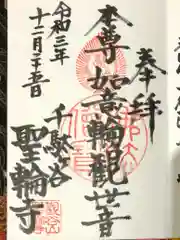 奉拝
本尊如意輪観世音
千駄ヶ谷
聖輪寺
令和三年
十二月二十五日